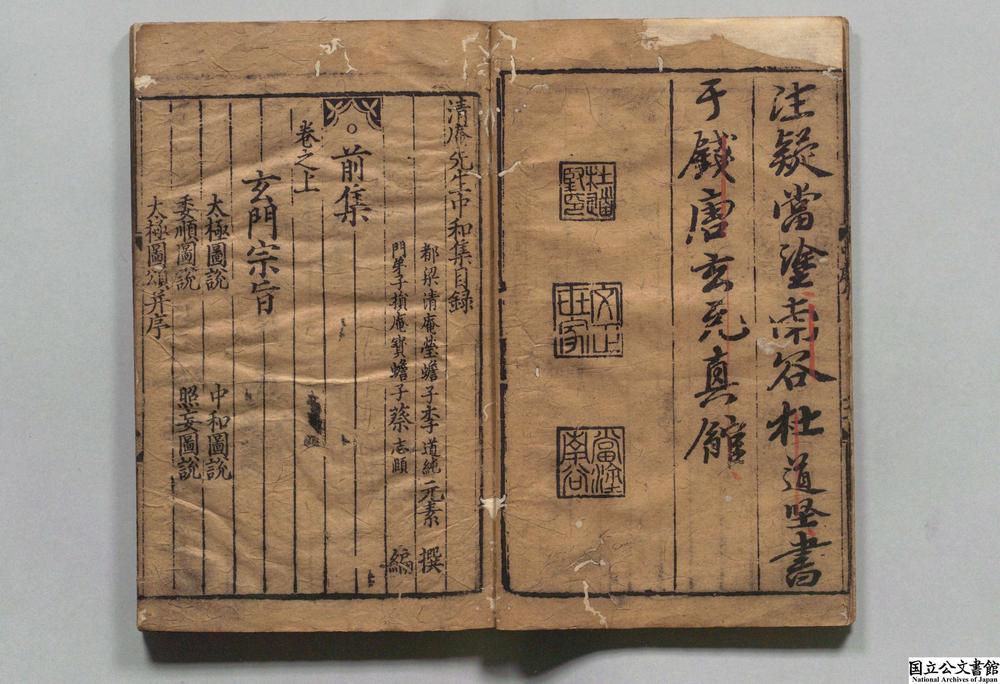 注疑當塗南谷杜道坚書
于錢唐玄元真館
杜道堅印
當塗南谷
清庵先生中和集目録
都梁清庵瑩蟾子李道純元素 撰
門弟子損庵寶蟾子蔡志頤 編
前集
卷之上
玄門宗旨
太極圖說 中和圖說
委順圖說 照妄圖說
太極圖頌并序
国立公文書館
National Archives of Japan